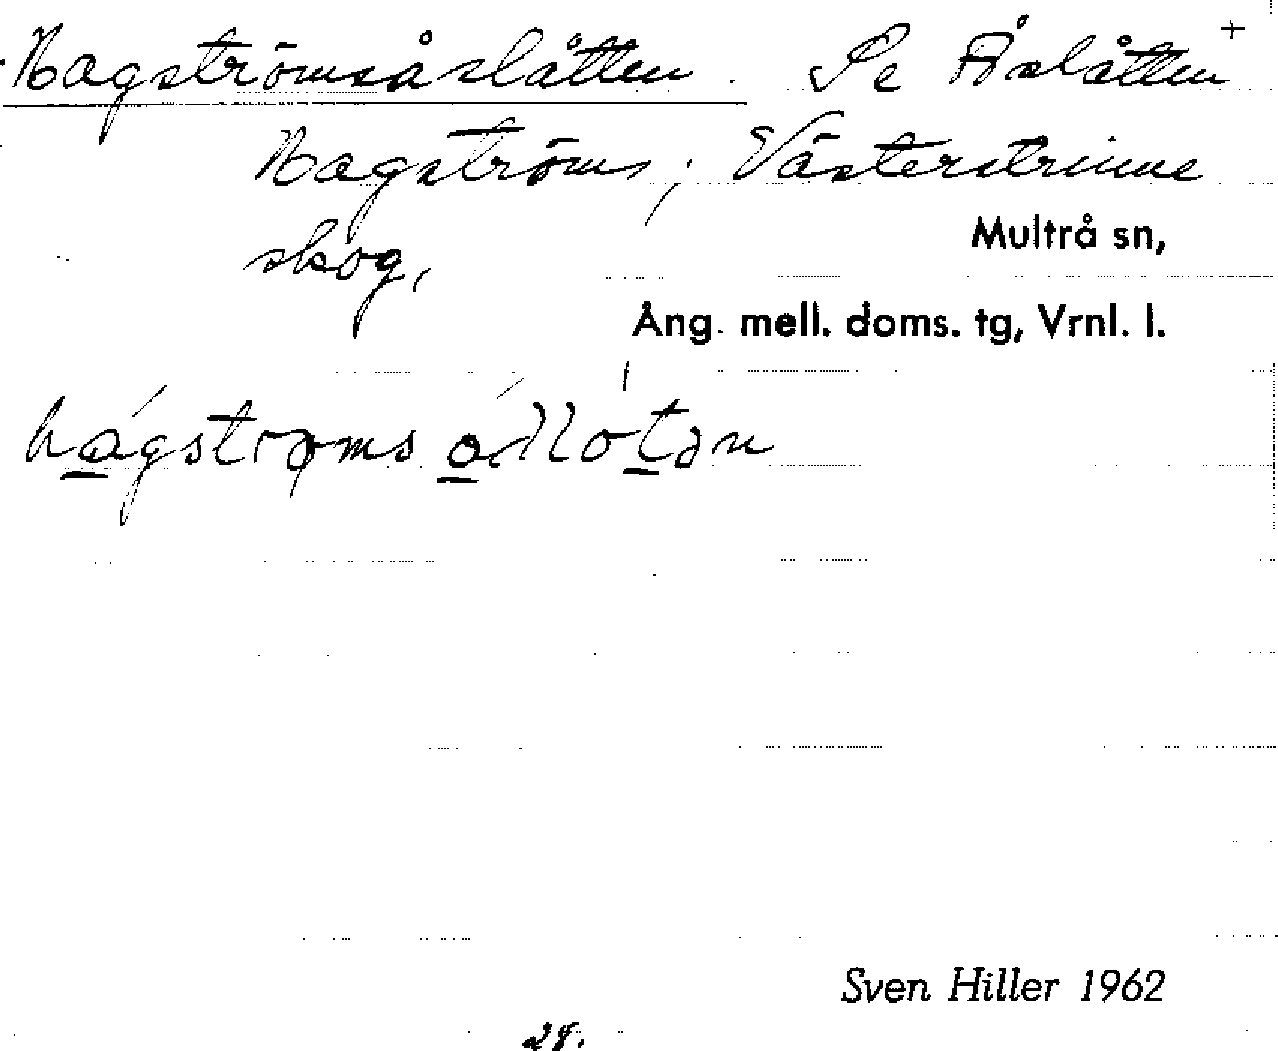 Hagströmsåslåtten. Se Åslåtten +
Hagströms; Västerstrinne
skog,
Multrå sn,
Ång. mell. doms. tg, Vrnl. l.
Sven Hiller 1962